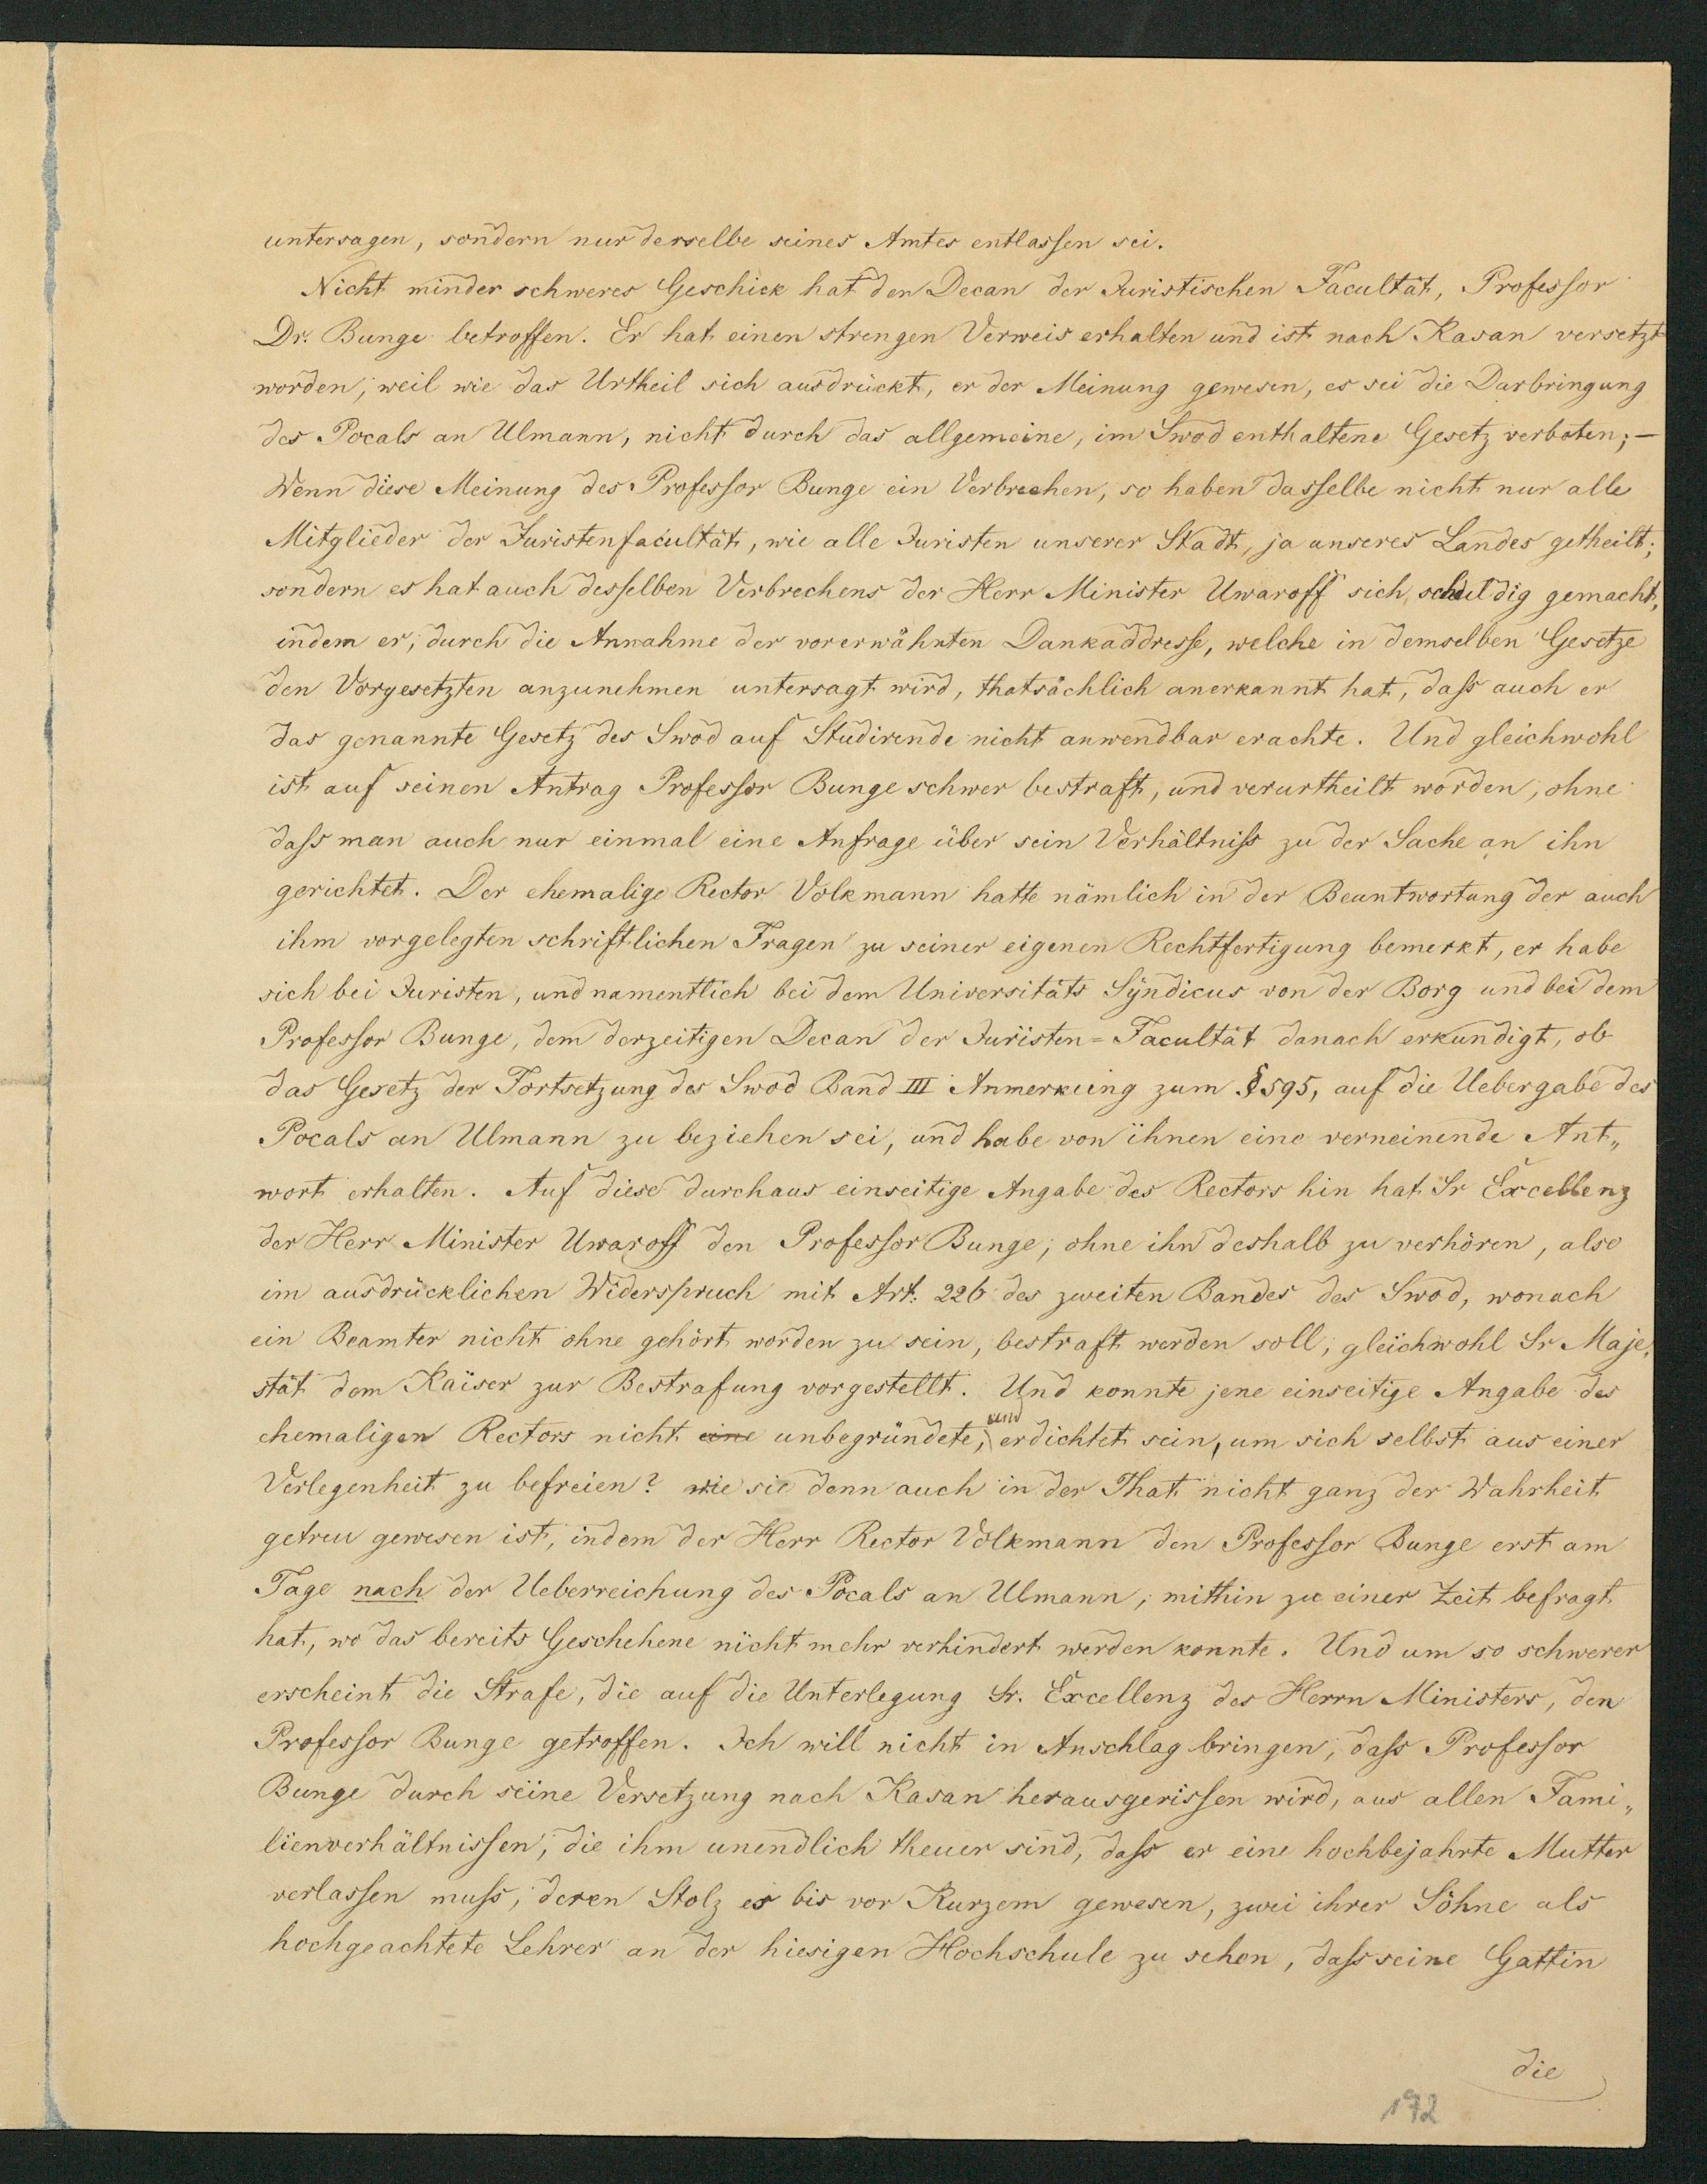 untersagen, sondern nur derselbe seines Amtes entlassen sei.
Nicht minder schweres Geschick hat den Decan der Juristischen Facultät, Professor
Dr. Bunge betroffen. Er hat einen strengen Verweis erhalten und ist nach Kasan versetzt
worden, weil wie das Urtheil sich ausdrückt, er der Meinung gewesen, es sei die Darbringung
des Pocals an Ulmann, nicht durch das allgemeine, im Swod enthaltene Gesetz verboten; —
Wenn diese Meinung des Professor Bunge ein Verbrechen, so haben dasselbe nicht nur alle
Mitglieder der Juristenfacultät, wie alle Juristen unserer Stadt, ja unseres Landes getheilt;
sondern es hat auch desselben Verbrechens der Herr Minister Uwaroff sich schuldig gemacht,
indem er, durch die Annahme der vorerwähnten Dankaddresse, welche in demselben Gesetze
den Vorgesetzten anzunehmen untersagt wird, thatsächlich anerkannt hat, dass auch er
das genannte Gesetz des Swod auf Studirende nicht anwendbar erachte. Und gleichwohl
ist auf seinen Antrag Professor Bunge schwer bestraft, und verurtheilt worden, ohne
dass man auch nur einmal eine Anfrage über sein Verhältniss zu der Sache an ihn
gerichtet. Der ehemalige Rector Volkmann hatte nämlich in der Beantwortung der auch
ihm vorgelegten schriftlichen Fragen zu seiner eigenen Rechtfertigung bemerkt, er habe
sich bei Juristen, und namentlich bei dem Universitäts Syndicus von der Borg und bei dem
Professor Bunge, dem derzeitigen Decan der Juristen=Facultät danach erkundigt, ob
das Gesetz der Fortsetzung des Swod Band III Anmerkung zum § 595, auf die Uebergabe des
Pocals an Ulmann zu beziehen sei, und habe von ihnen eine verneinende Ant„
wort erhalten. Auf diese durchaus einseitige Angabe des Rectors hin hat Sr Excellenz
der Herr Minister Uwaroff den Professor Bunge, ohne ihn deshalb zu verhören, also
im ausdrücklichen Widerspruch mit Art. 226 des zweiten Bandes des Swod, wonach
ein Beamter nicht ohne gehört worden zu sein, bestraft werden soll, gleichwohl Sr Maje„
stät dem Kaiser zur Bestrafung vorgestellt. Und konnte jene einseitige Angabe des
ehemaligen Rectors nicht eine unbegründete, und erdichtet sein, um sich selbst aus einer
Verlegenheit zu befreien? wie sie denn auch in der That nicht ganz der Wahrheit
getreu gewesen ist, indem der Herr Rector Volkmann den Professor Bunge erst am
Tage nach der Ueberreichung des Pocals an Ulmann, mithin zu einer Zeit befragt
hat, wo das bereits Geschehene nicht mehr verhindert werden konnte. Und um so schwerer
erscheint die Strafe, die auf die Unterlegung Sr. Excellenz des Herrn Ministers, den
Professor Bunge getroffen. Ich will nicht in Anschlag bringen, dass Professor
Bunge durch seine Versetzung nach Kasan herausgerissen wird, aus allen Fami„
lienverhältnissen, die ihm unendlich theuer sind, dass er eine hochbejahrte Mutter
verlassen muss, deren Stolz es bis vor Kurzem gewesen, zwei ihrer Söhne als
hochgeachtete Lehrer an der hiesigen Hochschule zu sehen, dass seine Gattin
die
172